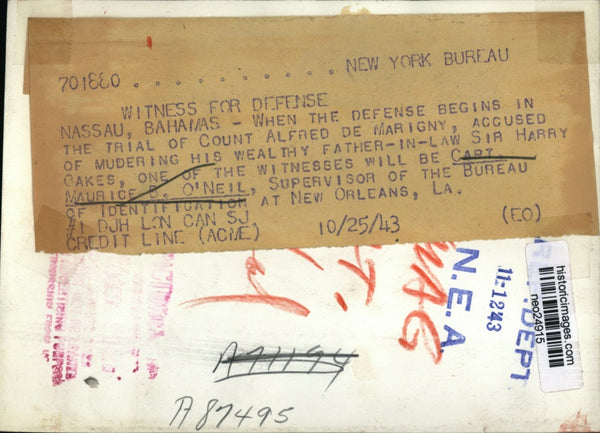 701880 . . . . . . . . . . NEW YORK BUREAU
WITNESS FOR DEFENSE
NASSAU, BAHAMAS - WHEN THE DEFENSE BEGINS IN
THE TRIAL OF COUNT ALFRED DE MARIGNY, ACCUSED
OF MUDERING HIS WEALTHY FATHER-IN-LAW SIR HARRY
OAKES, ONE OF THE WITNESSES WILL BE CAPT.
MAURICE B. O'NEIL, SUPERVISOR OF THE BUREAU
OF IDENTIFICATION AT NEW ORLEANS, LA.
#1 DJH LON CAN SJ
CREDIT LINE (ACME) 10/25/43 (EO)
11-1243
N.E.A
DEPT
historicimages.com
neo24915
A87495